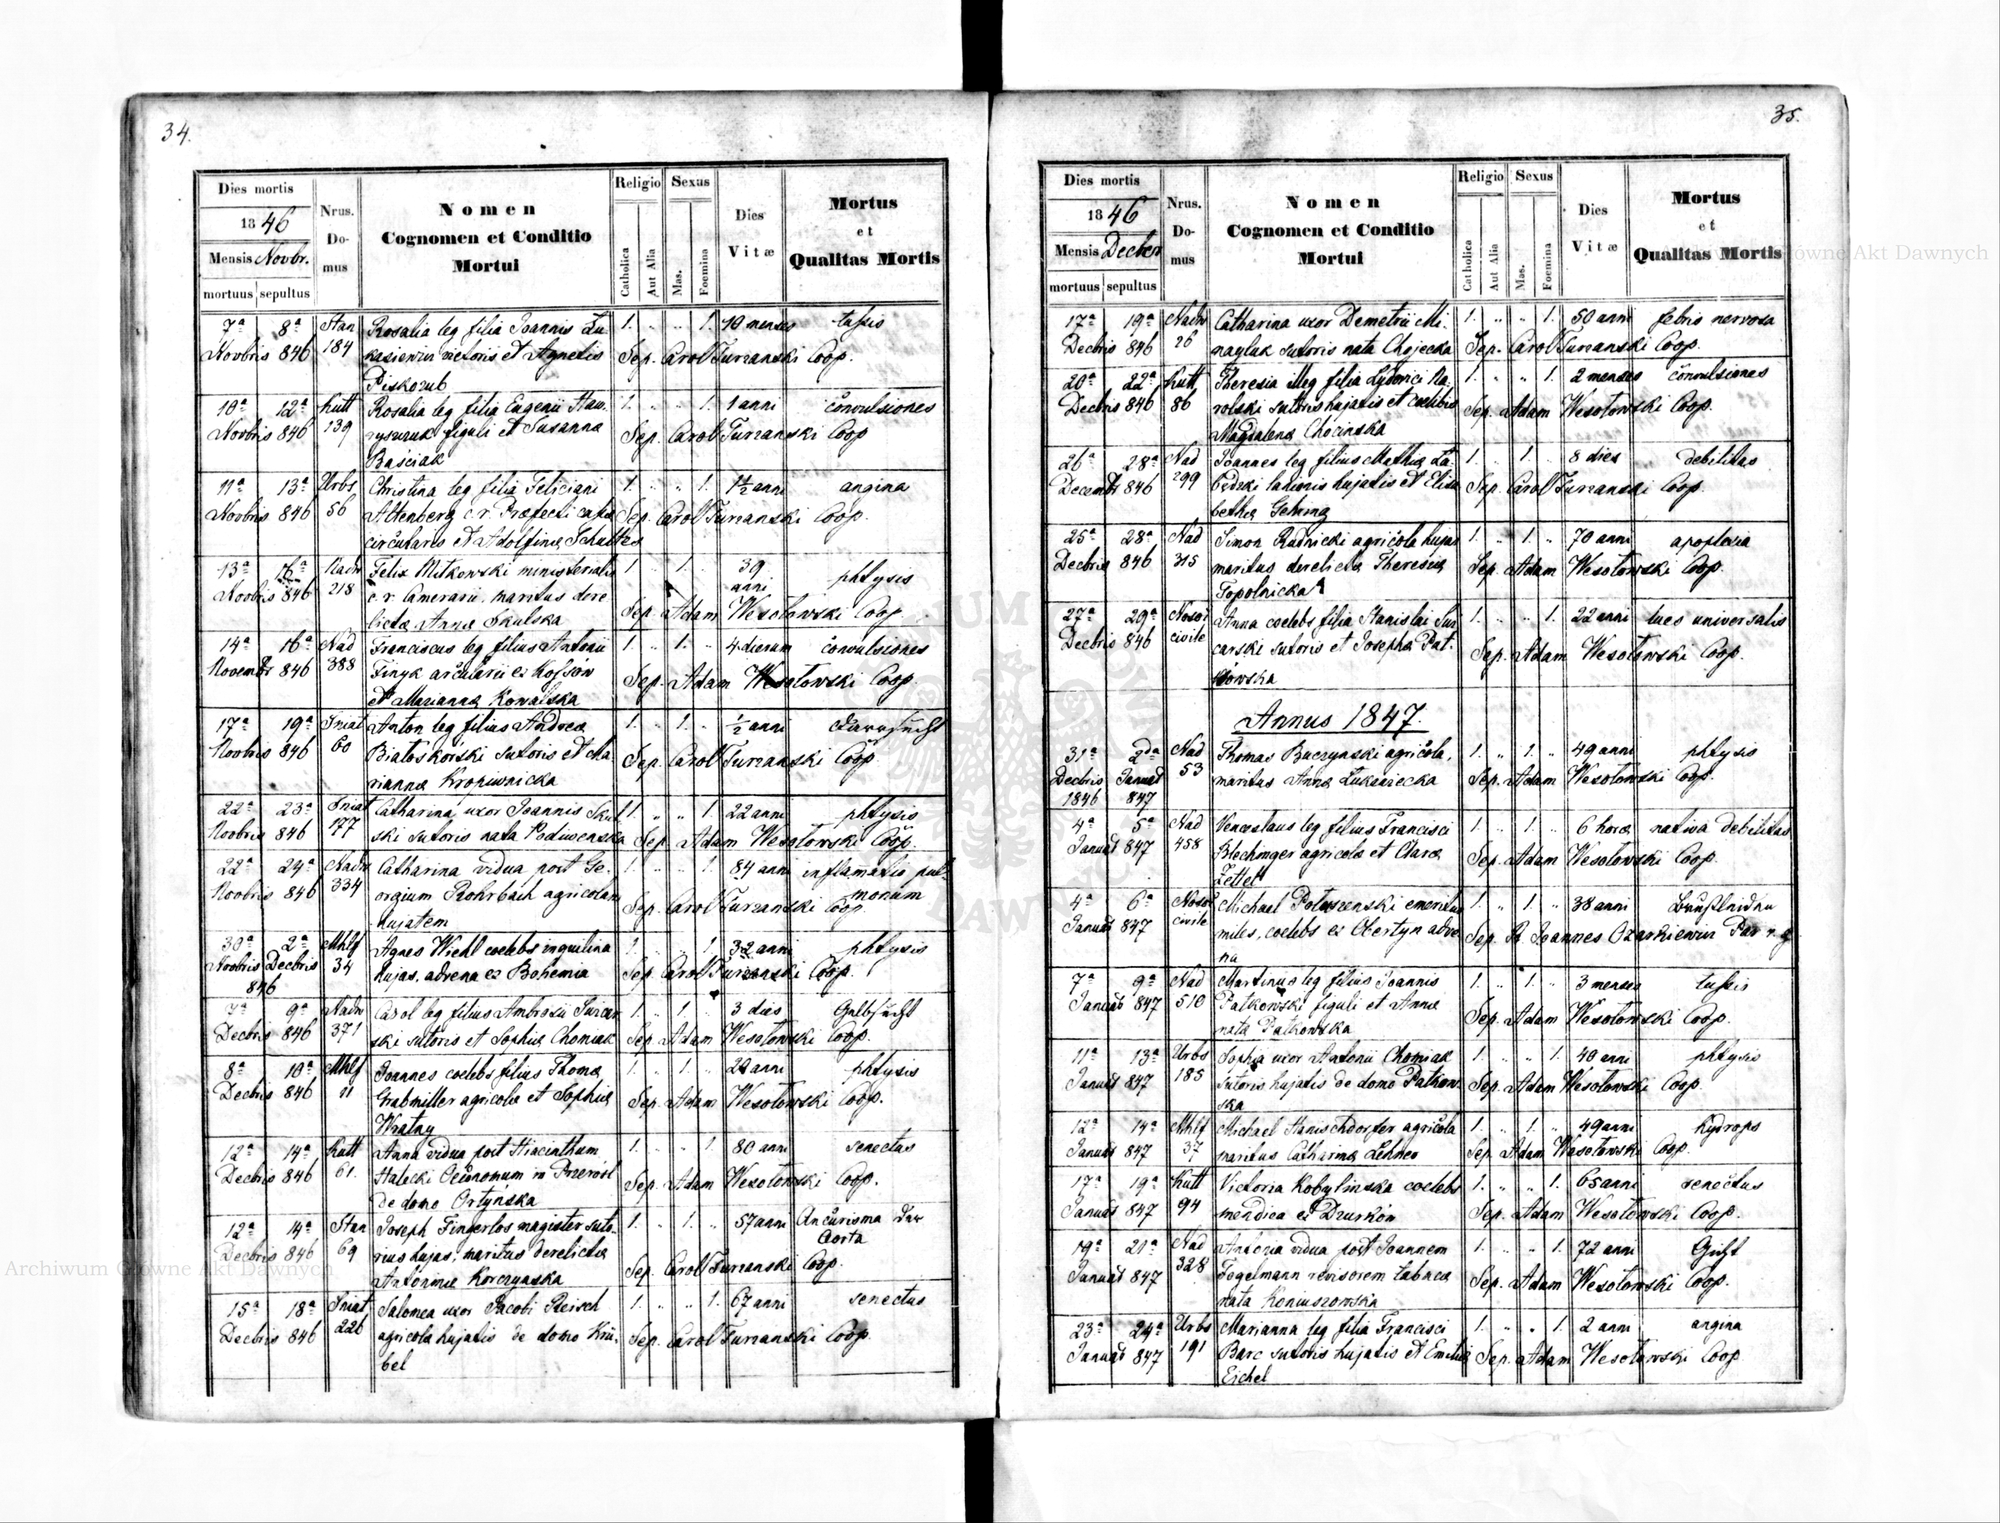 34.
Dies mortis
1846
Mensis Novbr.
mortuus sepultus
Nrus.
Do-
mus
Nomen
Cognomen et Conditio
Mortui
Religio
Catholica
Aut Alia
Sexus
Mas.
Foemina
Dies
Vitæ
Mortus
et
Qualitas Mortis
7ª 8ª Stan Rosalia leg filia Joannis Lu- 1. " " 1. 10 menses tussis
Novbris 846 184 kasiewicz victoris et Agnetis Sep. Carol Turzanski Coop.
Piskozub
10ª 12ª Kutt Rosalia leg filia Eugenii Haw- 1. " " 1. 1 anni convulsiones
Novbris 846 139 ryszczuk figuli et Susanna Sep. Carol Turzanski Coop
Baściak
11ª 13ª Urbs Christina leg filia Feliciani 1. " " 1. 1½ anni angina
Novbris 846 56 Altenberg c.r. Præfecti cassæ Sep. Carol Turzanski Coop.
circulares et Adolfina Schultzes
13ª 16ª Nadw Felix Mitkowski ministerialis 1. " 1. " 39
anni phtysis
Novbris 846 218 c.r. Camerarii, maritus dere
lictæ Anna Skulska Sep. Adam Wesołowski Coop
14ª 16ª Nad Franciscus leg filius Antonii 1. " 1. " 4 dierum convulsiones
Novembr 846 388 Finyk arcularii ex Hofsow Sep. Adam Wesołowski Coop
et Marianna Kowalska
17ª 19ª Sniat Anton leg filius Andrea 1. " 1. " ½ anni
Novbris 846 60 Białoskorski sutoris et Ma- Sep. Carol Turzanski Coop.
rianna Kropiwnicka
22ª 23ª Sniat Catharina uxor Joannis Sku- 1. " " 1. 22 anni phtysis
Novbris 846 177 ski sutoris nata Podiwenska Sep. Adam Wesołowski Coop.
22ª 24ª Nadw Catharina vidua post Ge- 1. " " 1. 84 anni inflamatio pul-
monum
Novbris 846 334 orgium Rohrbach agricolam Sep. Carol Turzanski Coop.
hujatem
30ª 2ª Mhlf Agnes Wiehl coelebs inquilina 1. " " 1. 32 anni phtysis
Novbris Decbris 34 hujas, advena ex Bohemia Sep. Carol Turzanski Coop.
846
7ª 9ª Nadw Carol leg filius Ambrosii Surcar 1. " 1. " 3 dies Gelbsucht
Decbris 846 371 ski sutoris et Sophia Chomiak Sep. Adam Wesołowski Coop.
8ª 10ª Mhlf Joannes coelebs filius Thoma 1. " 1. " 24 anni phtysis
Decbris 846 11 Grabmiller agricola et Sophia Sep. Adam Wesołowski Coop.
Wratny
12ª 14ª Kutt Anna vidua post Hiacinthum 1. " " 1. 80 anni senectus
Decbris 846 61. Halecki Oeconomum in Przerosl Sep. Adam Wesołowski Coop.
de domo Ortynska
12ª 14ª Stan Joseph Fingerlos magister suto- 1. " 1. " 57 anni Ancurisma der
Aorta
Decbris 846 69 rius hujas, maritus derelicta Sep. Carol Turzanski Coop.
Antonina Korczynska
15ª 18ª Sniat Salomea uxor Jacobi Reisch 1. " " 1. 67 anni senectus
Decbris 846 226 agricola hujatis de domo Krü- Sep. Carol Turzanski Coop.
bel
35.
Dies mortis
1846
Mensis Decber
mortuus sepultus
Nrus.
Do-
mus
Nomen
Cognomen et Conditio
Mortui
Religio
Catholica
Aut Alia
Sexus
Mas.
Foemina
Dies
Vitæ
Mortus
et
Qualitas Mortis
17ª 19ª Nadw Catharina uxor Demetrii Mi- 1. " " 1. 50 anni febris nervosa
Decbris 846 26 nayluk sutoris nata Chojecka Sep. Carol Turzanski Coop.
20ª 22ª Kutt Theresia illeg filia Lydovici Na- 1. " " 1. 2 menses convulsiones
Decbris 846 86 rolski sutoris hujatis et coelibis Sep. Adam Wesołowski Coop.
Magdalena Chocinska
26ª 28ª Nad Joannes leg filius Mathia Ła- 1. " 1. " 8 dies debilitas
Decembr 846 299 będzki lanionis hujatis et Elisa Sep. Carol Turzanski Coop.
betha Gehring
25ª 28ª Nad Simon Rudnicki agricola hujas 1. " 1. " 70 anni apoplexia
Decbris 846 315 maritus derelicta Theresia Sep. Adam Wesołowski Coop.
Topolnicka
27ª 29ª Nosoc Anna coelebs filia Stanislai Sur 1. " " 1. 22 anni lues universalis
Decbris 846 civile carski sutoris et Josepha Pat- Sep. Adam Wesołowski Coop.
kowska
Annus 1847.
31ª 2da Nad Thomas Buczynski agricola, 1. " 1. " 49 anni phtysis
Decbris Januar 53 maritus Anna Lukasiecka Sep. Adam Wesołowski Coop.
1846 847
4ª 5ª Nad Venceslaus leg filius Francisci 1. " 1. " 6 hora nativa debilitas
Januar 847 458 Blechinger agricola et Clara Sep. Adam Wesołowski Coop.
Zettel
4ª 6ª Nosoc Michael Potoszenski emeritus 1. " 1. " 38 anni
Januar 847 civile miles, coelebs ex Obertyn adve Sep. R. Joannes Ozarkiewicz Par r. g
na
7ª 9ª Nad Martinus leg filius Joannis 1. " 1. " 3 menses tussis
Januar 847 510 Patkowski figuli et Anna Sep. Adam Wesołowski Coop.
nata Patkowska
11ª 13ª Urbs Sophia uxor Antonii Chomiak 1. " " 1. 40 anni phtysis
Januar 847 185 sutoris hujatis de domo Patkow- Sep. Adam Wesołowski Coop.
ska
12ª 14ª Mhlf Michael Hanischdorfer agricola 1. " 1. " 49 anni hydrops
Januar 847 37 maritus Catharina Lehner Sep. Adam Wesołowski Coop.
17ª 19ª Kutt Victoria Kobylinska coelebs 1. " " 1. 65 anni senectus
Januar 847 94 mendica ex Drurkow Sep. Adam Wesołowski Coop.
19ª 21ª Nad Antonia vidua post Joannem 1. " " 1. 72 anni Gicht
Januar 847 328 Fogelmann revisorem tabaca Sep. Adam Wesołowski Coop.
nata Koniuszowska
23ª 24ª Urbs Marianna leg filia Francisci 1. " " 1. 2 anni angina
Januar 847 191 Barc sutoris hujatis et Emilia Sep. Adam Wesołowski Coop
Eichel
Archiwum Główne Akt Dawnych